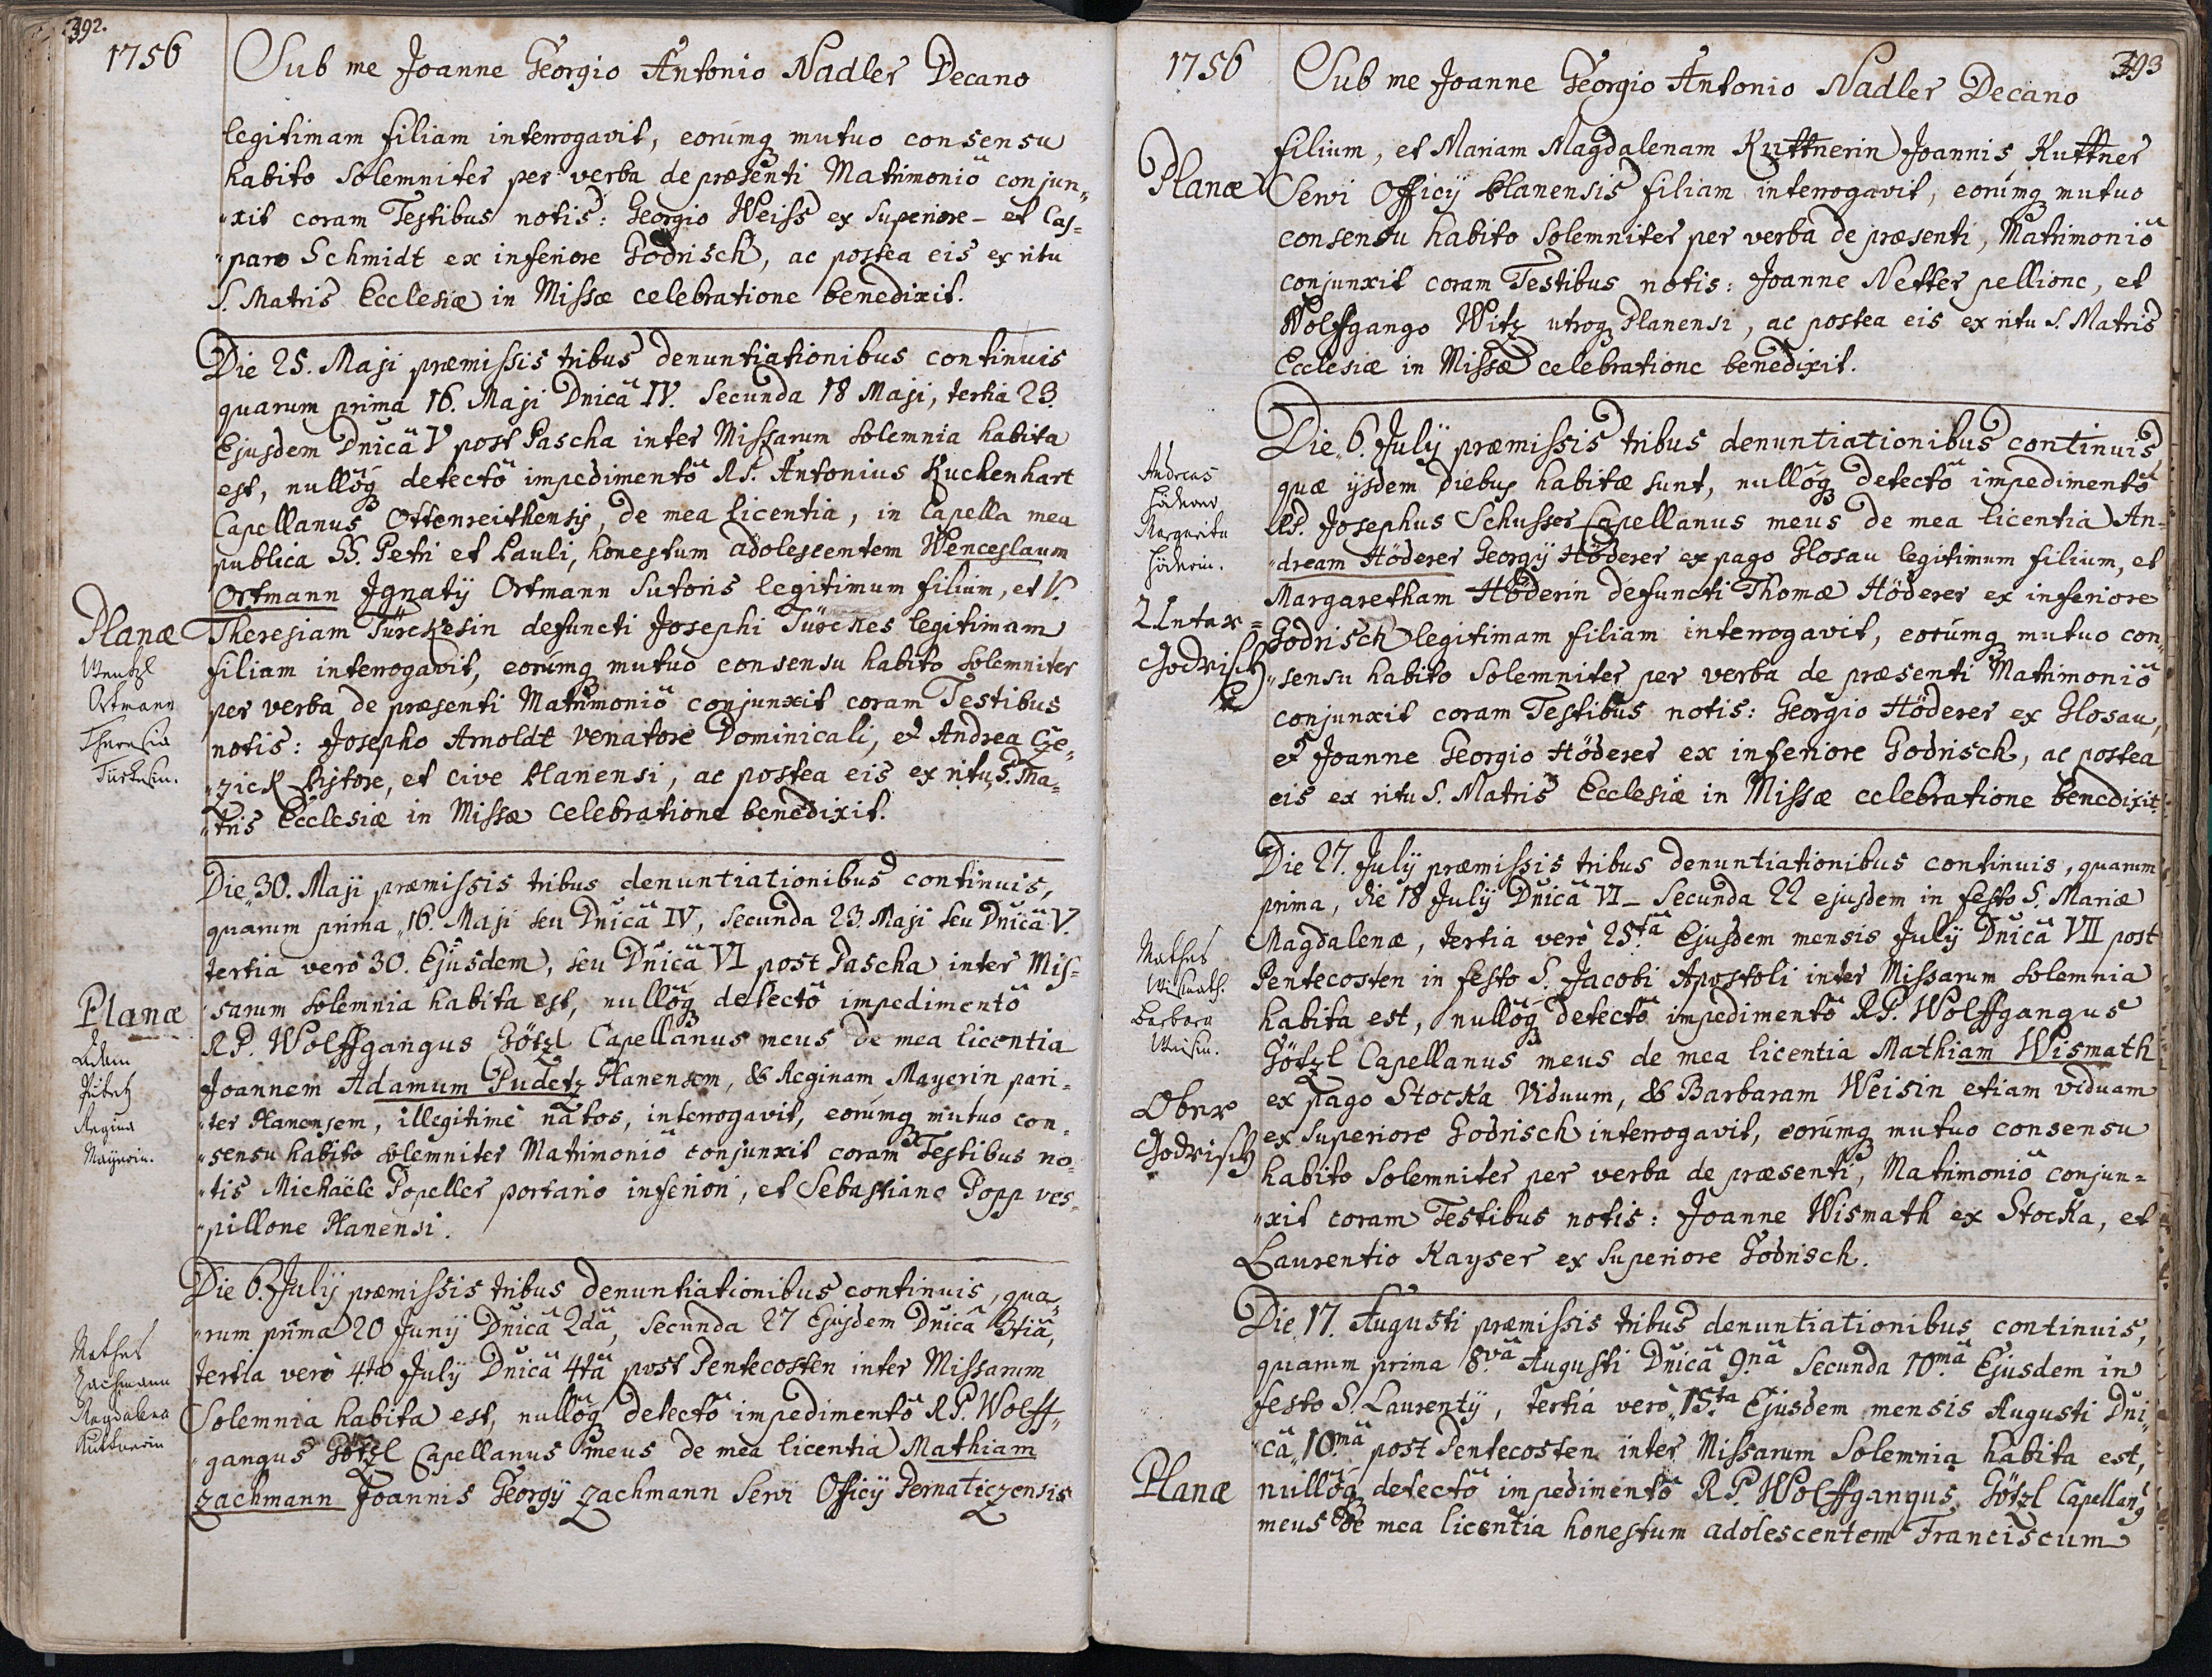 392.
1756
Sub me Joanne Georgio Antonio Nadler Decano
legitimam filiam interrogavit, eorumq mutuo consensu
habito Solemniter per verba de præsenti Matrimoniô conjun=
"xit coram Testibus notis: Georgio Weiss ex Superiore - et Cas=
"paro Schmidt ex inferiore Godrisch, ac postea eis ex ritu
S. Matris Ecclesiæ in Missæ celebratione benedixit.
Die 25. Maji præmissis tribus denuntiationibus continuis
quarum prima 16. Maji Dnicâ IV. Secunda 18 Maji, tertia 23.
Ejusdem Dnicâ V post Pascha inter Missarum Solemnia habita
est, nullôq detectô impedimentô RP. Antonius Kuckenhart
Capellanus Ottenreithensis, de mea licentia, in Capella mea
publica SS. Petri et Pauli, honestum adolescentem Wenceslaum
Ortmann Ignatij Ortmann Sutoris legitimum filium, et V.
Planæ
Theresiam Türckesin defuncti Josephi Türckes legitimam
Wentzl
Ortmann
Theresia
Türkesin.
filiam interrogavit, eorumq mutuo consensu habito Solemniter
per verba de præsenti Matrimoniô conjunxit coram Testibus
notis: Josepho Arnoldt Venatore Dominicali, et Andrea Cze=
"zick Pistore, et cive Planensi, ac postea eis ex ritu S. Ma=
"tris Ecclesiæ in Missæ celebratione benedixit.
Die 30. Maji præmissis tribus denuntiationibus continuis,
quarum prima 16. Maji seu Dnicâ IV, Secunda 23. Maji seu Dnicâ V.
tertia verô 30. Ejusdem, seu Dnicâ VI post Pascha inter Mis=
Planæ
sarum Solemnia habita est, nullôq detectô impedimentô
Adam
Pudetz
Regina
Mayerin.
RP. Wolffgangus Götzl Capellanus meus de mea licentia
Joannem Adamum Pudetz Planensem, & Reginam Mayerin pari=
"ter Planensem, illegitimè natos, interrogavit, eorumq mutuo con=
"sensu habito solemniter Matrimoniô conjunxit coram Testibus no=
"tis Michaële Popeller portario inferiori, et Sebastiano Popp ves=
"pillone Planensi.
Die 6. Julij præmissis tribus denuntiationibus continuis, qua=
"rum prima 20 Junij Dnicâ 2dâ, Secunda 27 Ejusdem Dnicâ 3tiâ,
Mathes
Zachmann
Magdalena
Kuttnerin
tertia verô 4ta July Dnicâ 4tâ post Pentecosten inter Missarum
Solemnia habita est, nullôq detectô impedimentô RP. Wolff=
"gangus Götzl Capellanus meus de mea licentia Mathiam
Zachmann Joannis Georgy Zachmann Servi Officij Pernaticzensis
1756
Sub me Joanne Georgio Antonio Nadler Decano
393
filium, et Mariam Magdalenam Kuttnerin Joannis Kuttner
Planæ
Servi Officij Planensis filiam interrogavit, eorumq mutuo
consensu habito Solemniter per verba de præsenti, Matrimoniô
conjunxit coram Testibus notis: Joanne Netter pellione, et
Wolffgango Witz utroq Planensi, ac postea eis ex ritu S. Matris
Ecclesiæ in Missæ celebratione benedixit.
Die 6. July præmissis tribus denuntiationibus continuis
Andreas
Höderer
Margaretha
Höderin.
quæ ijsdem diebus habitæ sunt, nullôq detectô impedimentô
RP. Josephus Schusser Capellanus meus de mea licentia An=
"dream Höderer Georgij Höderer ex pago Glosau legitimum filium, et
Margaretham Höderin defuncti Thomæ Höderer ex inferiore
Unter=
Godrisch
Godrisch legitimam filiam interrogavit, eorumq mutuo con=
"sensu habito Solemniter per verba de præsenti Matrimoniô
conjunxit coram Testibus notis: Georgio Höderer ex Glosau,
et Joanne Georgio Höderer ex inferiore Godrisch, ac postea
eis ex ritu S. Matris Ecclesiæ in Missæ celebratione benedixit.
Die 27. July præmissis tribus denuntiationibus continuis, quarum
prima, die 18 July Dnicâ VI - Secunda 22 ejusdem in festo S. Mariæ
Magdalenæ, tertia verô 25.ta Ejusdem mensis July Dnicâ VII post
Mathes
Wismath.
Barbara
Weisin.
Pentecosten in festo S. Jacobi Apostoli inter Missarum Solemnia
habita est, nullôq detectô impedimentô RP. Wolffgangus
Götzl Capellanus meus de mea licentia Mathiam Wismath
Ober
Godrisch
ex pago Stocka Viduum, & Barbaram Weisin etiam viduam
ex Superiore Godrisch interrogavit, eorumq mutuo consensu
habito Solemniter per verba de præsenti, Matrimoniô conjun=
"xit coram Testibus notis: Joanne Wismath ex Stocka, et
Laurentio Kayser ex Superiore Godrisch.
Die 17. Augusti præmissis tribus denuntiationibus continuis,
quarum prima 8.vâ Augusti Dnicâ 9.nâ Secunda 10.mâ Ejusdem in
festo S. Laurentij, tertia verô 15.ta Ejusdem mensis Augusti Dni=
"câ 10.mâ post Pentecosten inter Missarum Solemnia habita est,
Planæ
nullôq detectô impedimentô RP. Wolffgangus Götzl Capellang
meus de mea licentia honestum adolescentem Franciscum